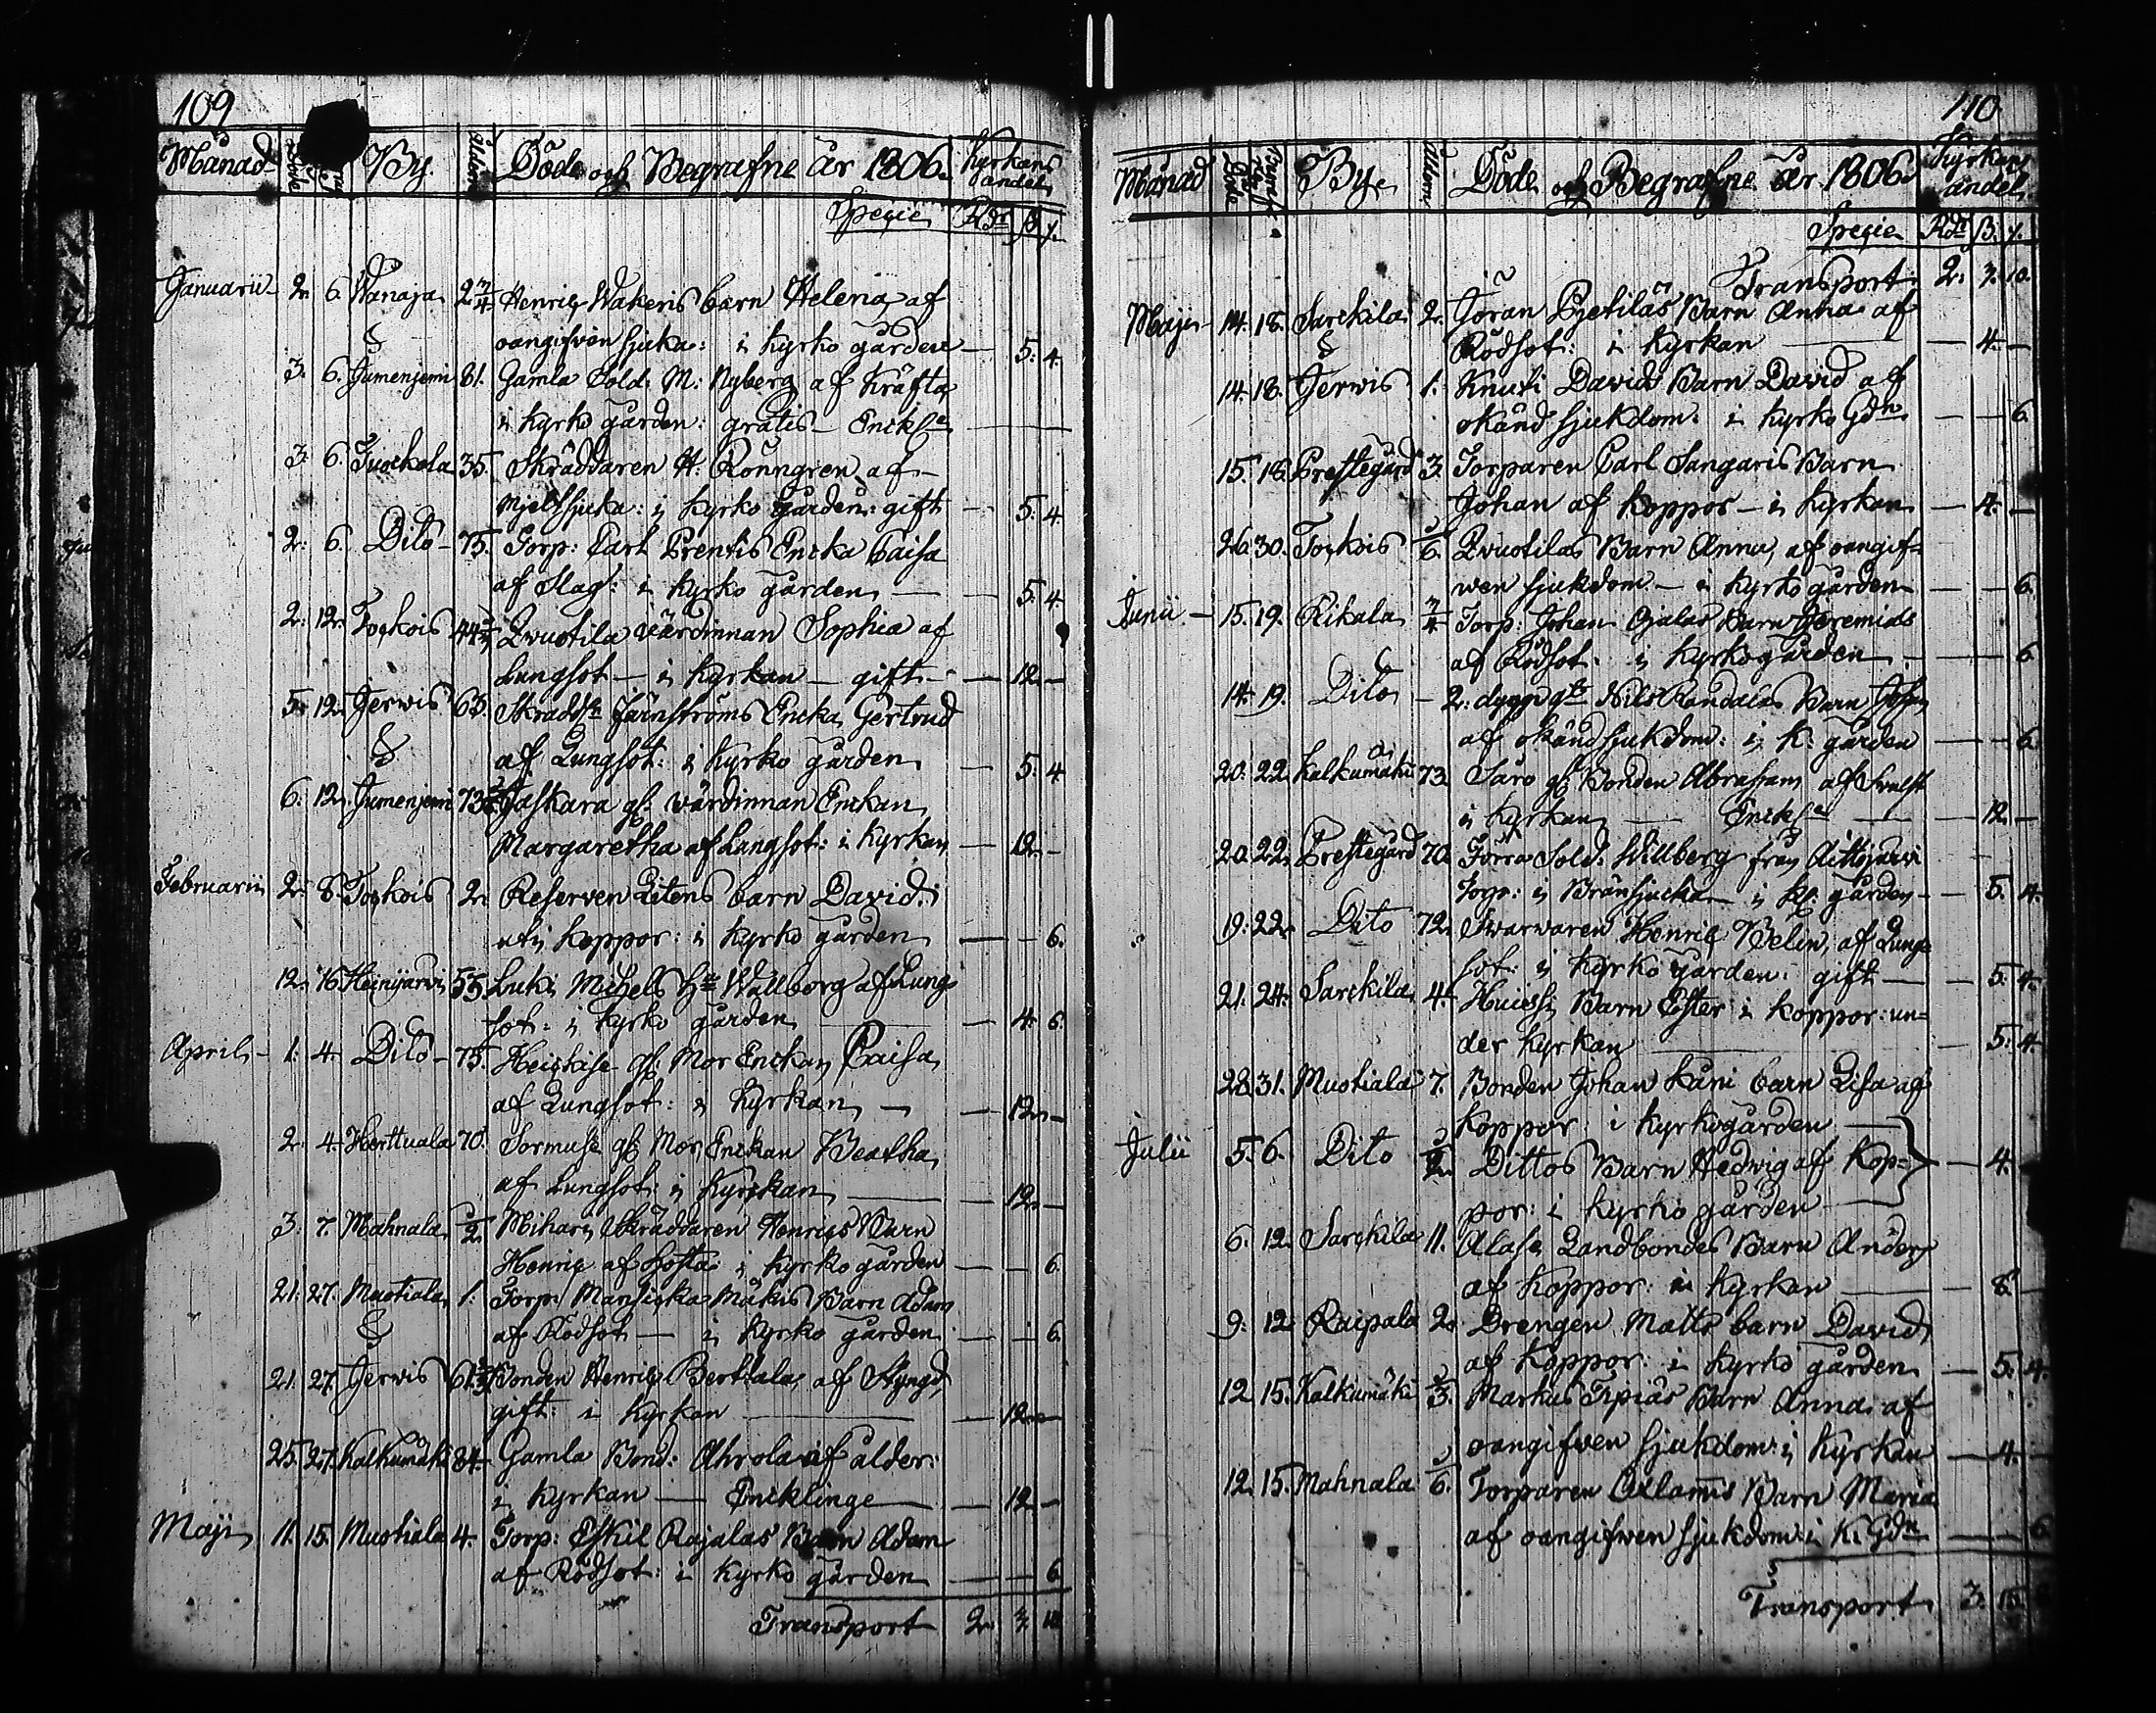 109
Månad Döde By. Åldern Döde och Begrafne År 1806. Kyrkans andel
Specie Rdr ß. r.
Januarii 2. 6. Wanaja 2 3/4. Henric Wakeris barn Helena, af
oangifven sjuka: i kyrko gården — 5. 4.
3. 6. Jumenjemi 81. Gamla Sold: M: Nyberg af Kräfta
i kyrko gården: gratis Enckl.
3. 6. Tuockola 35. Skräddaren H: Rönngren af
Mjeltsjuka: i kyrko gården: gift — 5. 4.
2. 6. Dito 75. Torp: Carl Prentis Encka Caisa
af Slag: i kyrko gården — 5. 4.
2. 12. Tockois 44 Qvuotila värdinnan Sophia af
Lungsot — i Kyrkan — gift — 12. —
5. 12. Jerwis 63. Skradd Färnströms Encka Gertrud
af Lungsot: i kyrko gården — 5. 4
6. 12. Jumenjemi 73 Jaskara gl: wärdinnan Enckan
Margaretha af Lungsot: i kyrkan — 12. —
Februarii 2. 8. Tockois 2. Reserven Litens barn David
uti koppor: i kyrko gården — 6.
12. 16. Heinijärvi 55. Luki Michels Hu Wallborg af Lung
sot: i kyrko gården — 4. 6.
April 1. 4. Dito 75. Heickise gl: Mor Enckan Caisa
af Lungsot: i kyrkan — 12. —
2. 4. Herttuala 70. Sormuse gl: Mor Enckan Beatha
af Lungsot: i kyrkan — 12. —
3. 7. Mahnala 1/2. Mihari Skräddaren Henrics Barn
Henric af Hosta i kyrko gården — 6.
21. 27. Muotiala 1. Torp: Mansicka Mäkis Barn Adam
af Rödsot — i kyrko gården — 6.
21. 27. Jerwis 61 Bonden Henric Berttala, af Styngd
gift: i kyrkan — 12. —
25. 27. Kalkumäki 84. Gamla Bond: Ahrola af ålder:
i kyrkan — Encklinge — 12. —
Maji 11. 15. Muotiala 4. Torp: Eskil Rajalas Barn Adam
af Rödsot: i kyrko gården — 6
Transport 2. 3. 10
110
Månad Döde Begrafne By. Åldern Döde och Begrafne År 1806. Kyrkans andel
Specie Rdr ß. r.
Transport 2. 3. 10.
Maji 14. 18. Sarckila 2. Jöran Pjetiläs Barn Anna af
Rödsot: i kyrkan — 4. —
14. 18. Jerwis 1. Knuti Davids Barn David af
okänd sjukdom: i kyrko Gdn — 6.
15. 18. Prestegård 3. Torparen Carl Sangaris Barn
Johan af koppor — i kyrkan — 4. —
26. 30. Tockois /6. Qvuotilas Barn Anna, af oangif=
wen sjukdom — i kyrko gården — 6.
Junii 15. 19. Rikala 3/4 Torp: Johan Ojalas Barn Jeremias
af Rödsot: i kyrkogården — 6
14. 19. Dito — 2. dygn gt Nils Randalas Barn Johan
af okänd sjukdom: i k: gården — 6
20. 22. Kalkumäki 73. Saro gl Bonden Abraham af Svulst
i kyrkan — Enckl — 12. —
20. 22. Prestegård 70. Förra Sold: Willberg från
Torp: i Bränsjucka i k: gården — 5. 4.
19. 22. Dito 72. Swarwaren Henric Belin, af Lung
sot: i kyrko gården: gift — 5. 4.
21. 24. Sarckila 4. Huiessi Barn Ester i koppor: un=
der kyrkan — 5. 4.
28. 31. Muotiala 7. Bonden Johan Käni barn Lisa af
koppor: i kyrkogården
Julii 5. 6. Dito Dittos Barn Hedwig af Kop= — 4.
por: i kyrko gården
6. 12. Sarckila 11. Alase Landbondes Barn Anders
af koppor: in kyrkan — 8.
9. 12. Raipala 2. Drengen Matts barn David
af koppor: i kyrko gården — 5. 4.
12. 15. Kalkumäki /3. Markus Tipiäs Barn Anna af
oangifwen sjukdom: i kyrkan — 4. —
12. 15. Mahnala /6. Torparen Barn Maria
af oangifwen sjukdom: i K. Gdn — 6
Transport 3. 15.